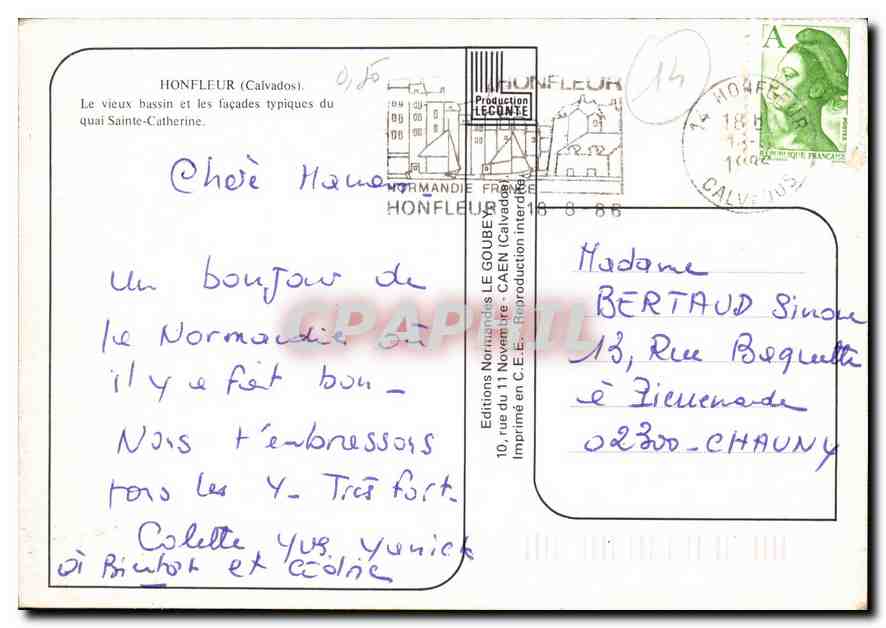 HONFLEUR (Calvados).
Le vieux bassin et les façades typiques du
quai Sainte-Catherine.
0,80
Production
LECONTE
HONFLEUR
NORMANDIE FRANCE
HONFLEUR 18-8-86
14
14 HONFLEUR
18H
1986
CALVADOS
A
POSTES
REPUBLIQUE FRANÇAISE
Chère Maman
Un bonjour de
la Normandie où
il y a fait bon -
Nous t'embrassons
tous les 4 - Très fort -
Colette Yves Yanick
à Bientôt et Cédric
Editions Normandes LE GOUBEY
10, rue du 11 Novembre - CAEN (Calvados)
Imprimé en C.E.E. Reproduction interdite.
Madame
BERTAUD Simone
13, Rue
à
02300 - CHAUNY
CPAPHIL